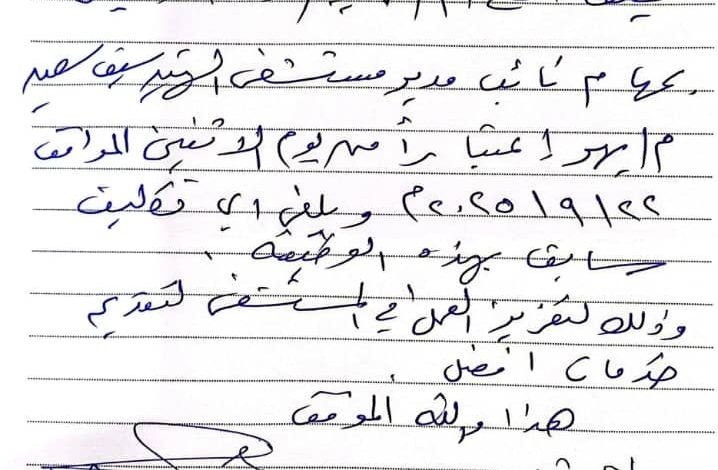 بمهام نائب مدير مستشفى الشهيد سيف سعيد
اعتباراً من يوم الاثنين الموافق
٢٠٢٥/٩/٢٢م ويلغى اي تكليف
سابق بهذه الوظيفة .
وذلك لتعزيز العمل في المستشفى لتقديم
خدمات افضل .
هذا والله الموفق